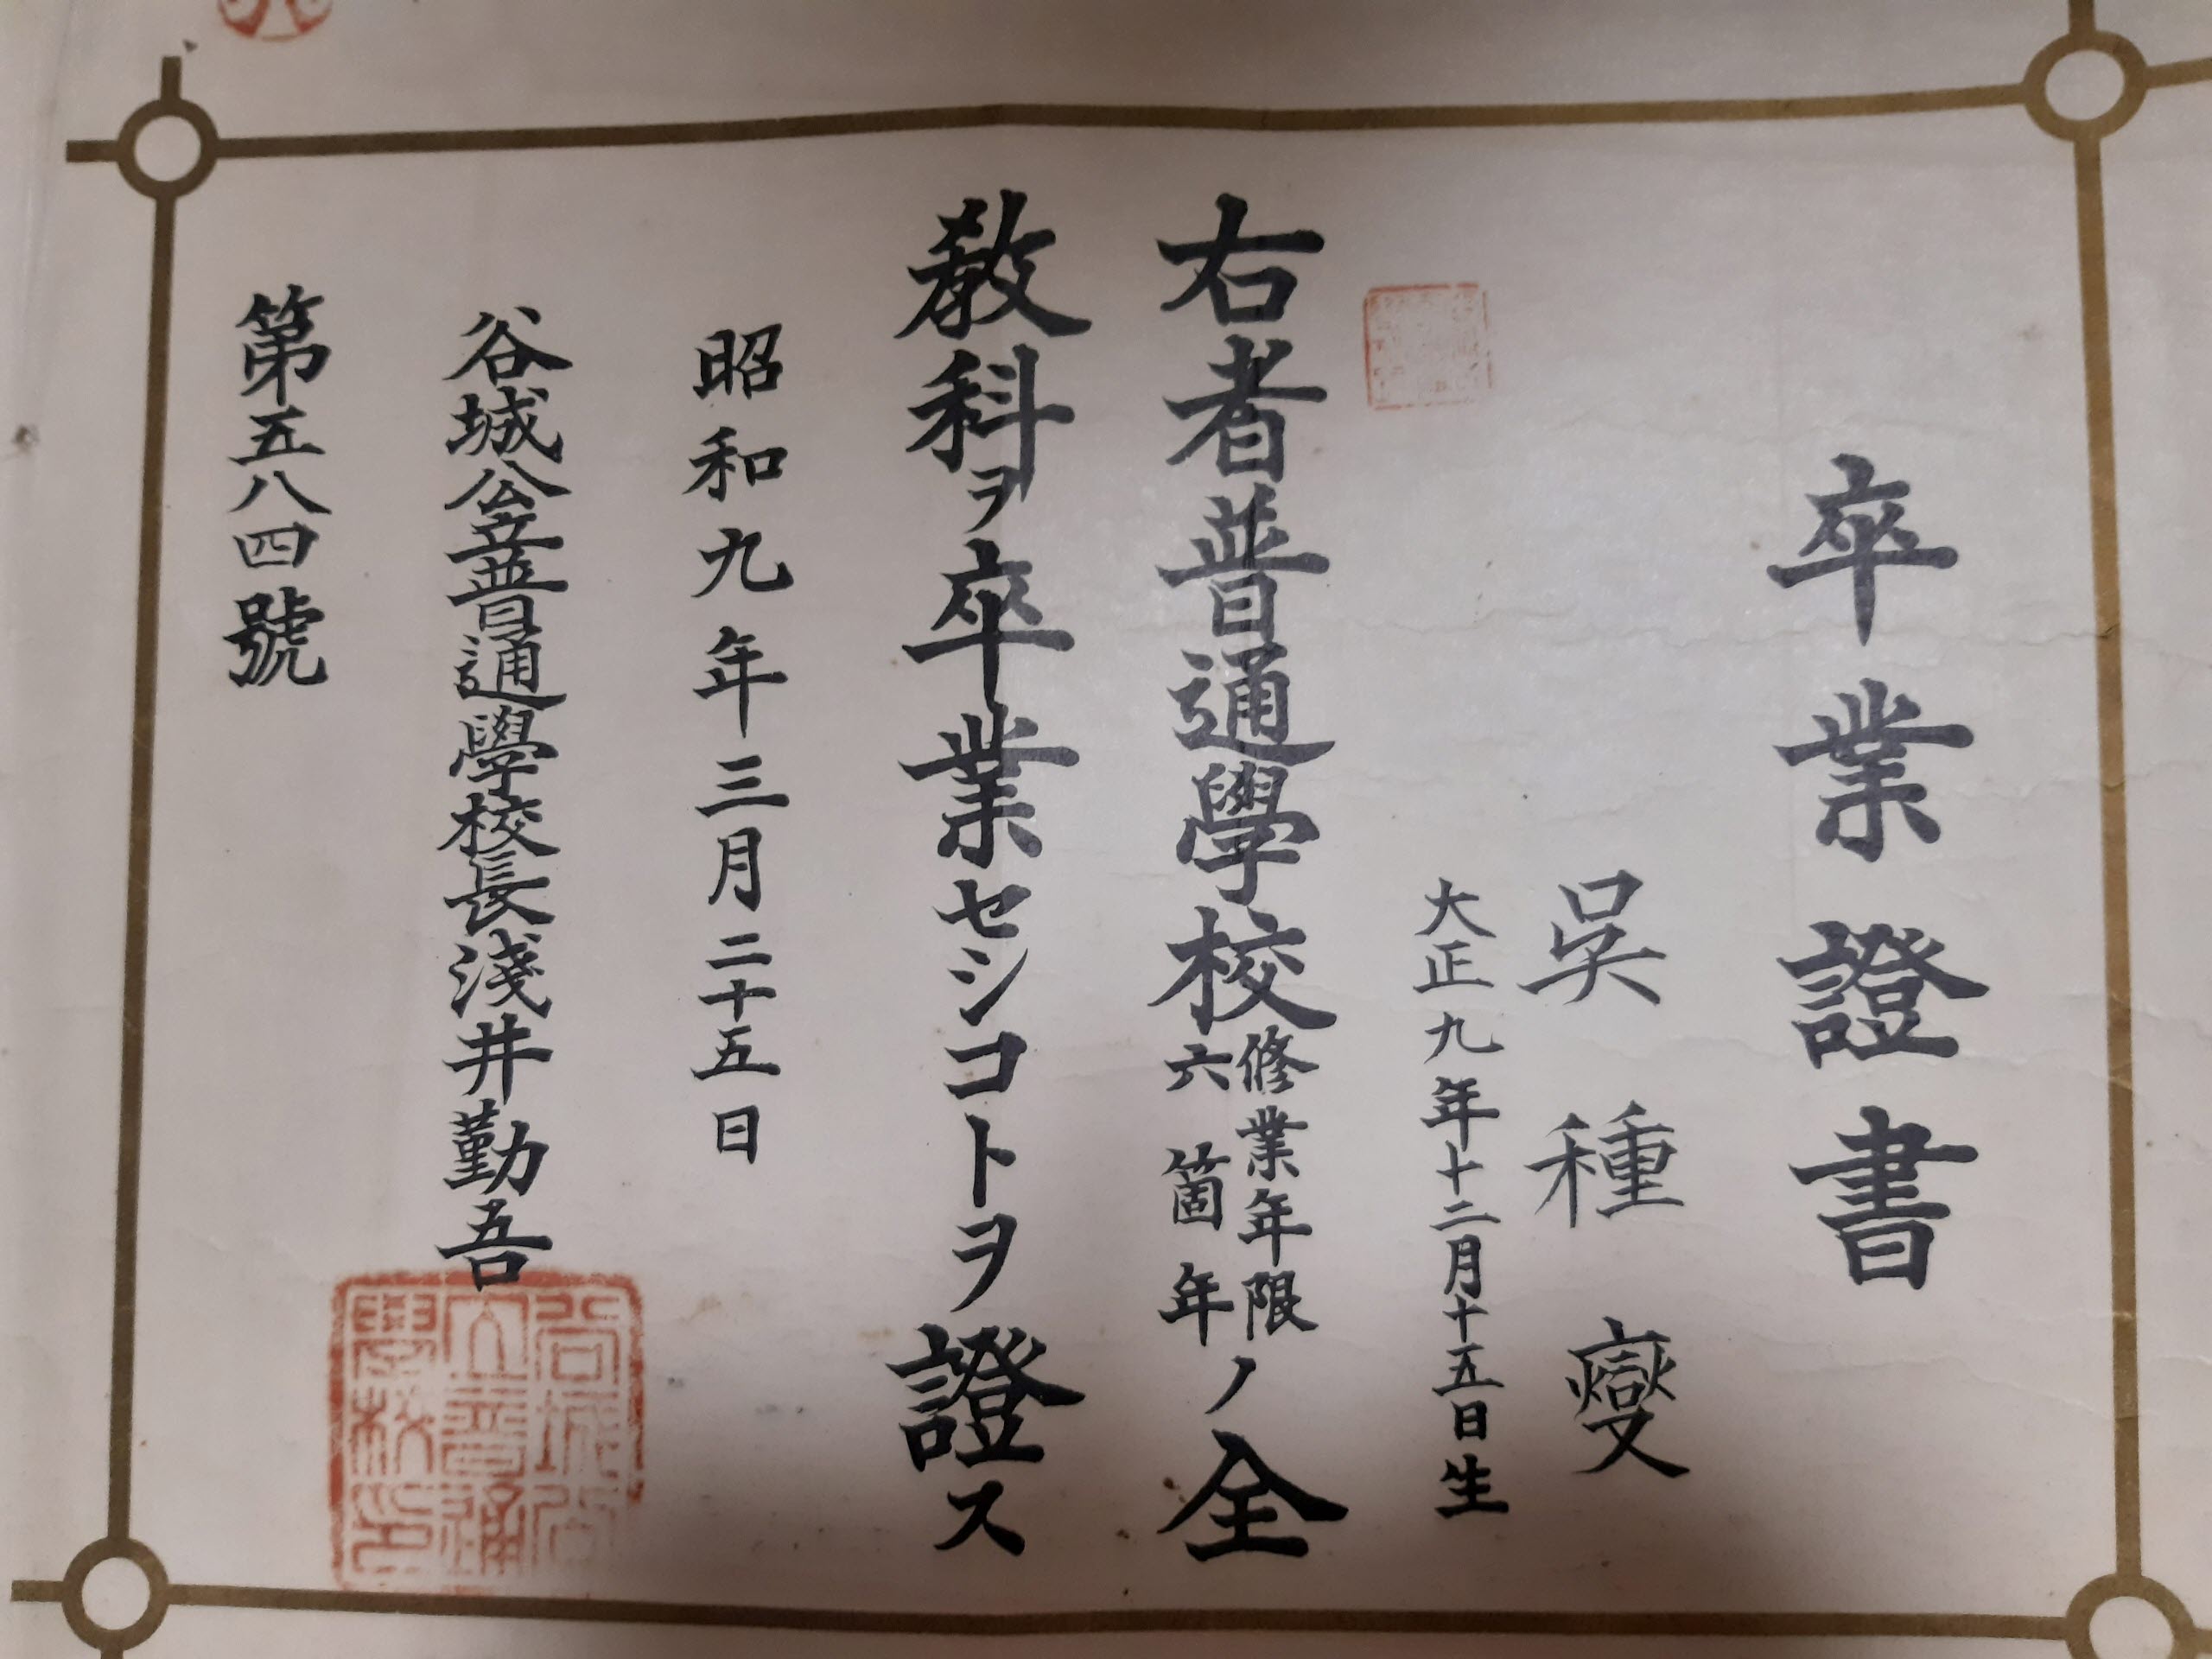 卒業證書
吳種燮
大正九年十二月十五日生
右者普通學校修業年限六箇年ノ全
教科ヲ卒業セシコトヲ證ス
昭和九年三月二十五日
谷城公立普通學校長淺井勤吾
谷城公立普通學校印
第五八四號